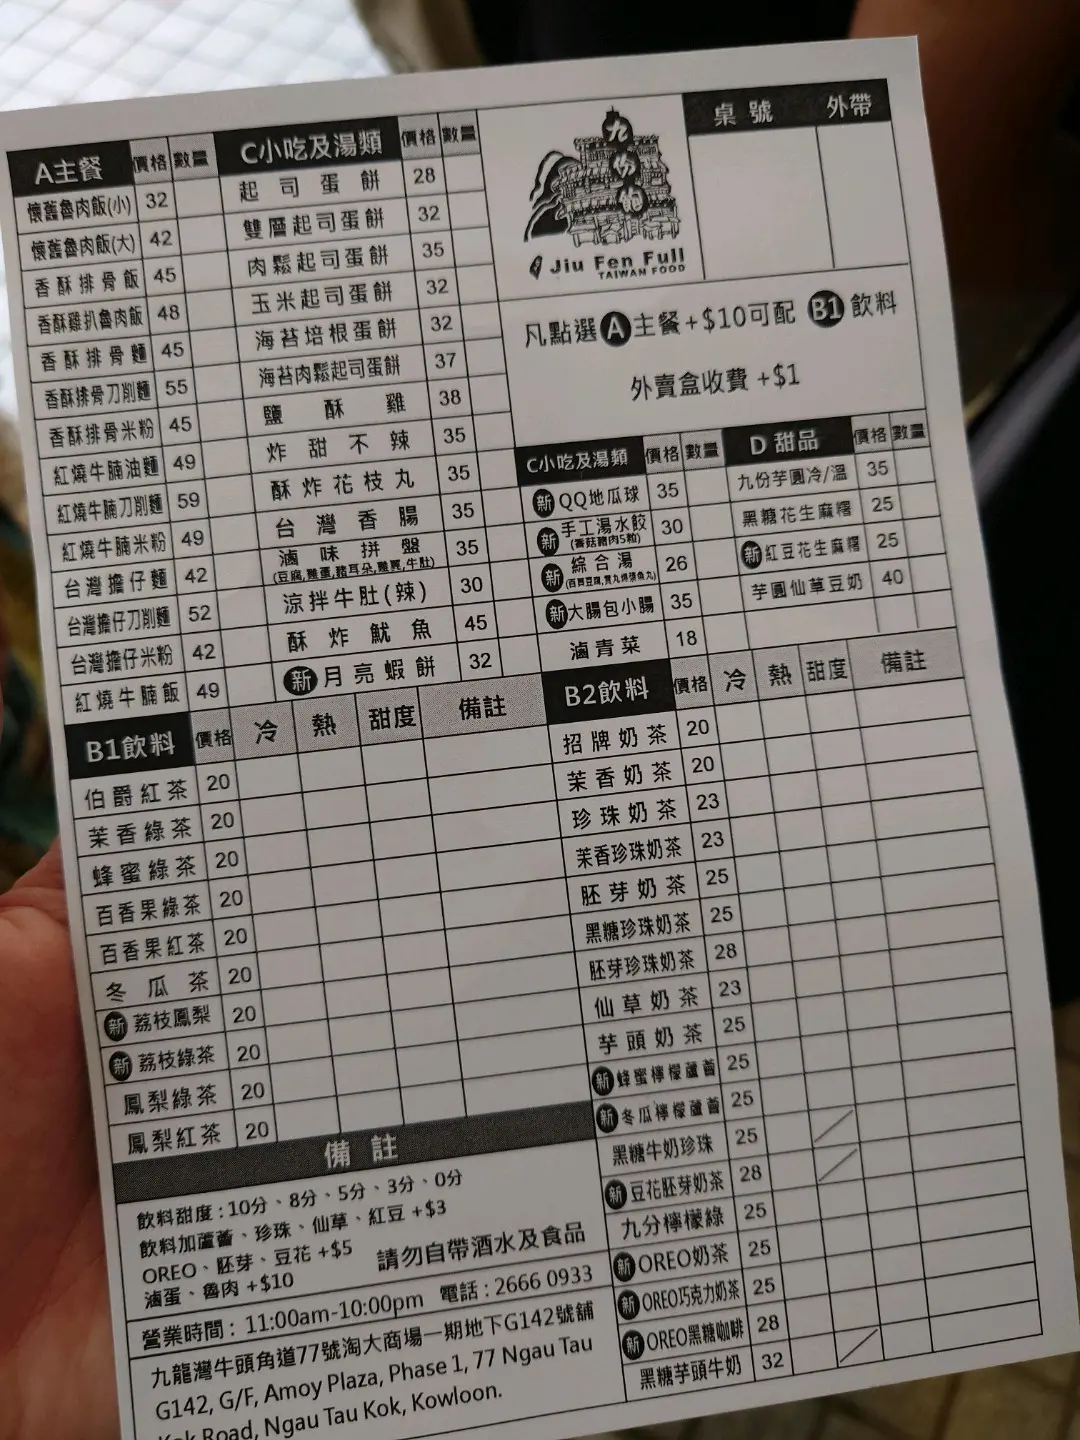 A主餐 價格 數量
懷舊魯肉飯(小) 32
懷舊魯肉飯(大) 42
香酥排骨飯 45
香酥雞扒魯肉飯 48
香酥排骨麵 45
香酥排骨刀削麵 55
香酥排骨米粉 45
紅燒牛腩油麵 49
紅燒牛腩刀削麵 59
紅燒牛腩米粉 49
台灣擔仔麵 42
台灣擔仔刀削麵 52
台灣擔仔米粉 42
紅燒牛腩飯 49
C小吃及湯類 價格 數量
起司蛋餅 28
雙層起司蛋餅 32
肉鬆起司蛋餅 35
玉米起司蛋餅 32
海苔培根蛋餅 32
海苔肉鬆起司蛋餅 37
鹽酥雞 38
炸甜不辣 35
酥炸花枝丸 35
台灣香腸 35
滷味拼盤 35
(豆腐,雞蛋,豬耳朵,雞翼,牛肚)
涼拌牛肚(辣) 30
酥炸魷魚 45
新 月亮蝦餅 32
九份的
Jiu Fen Full
TAIWAN FOOD
桌號 外帶
凡點選A主餐+$10可配 B1飲料
外賣盒收費+$1
C小吃及湯類 價格 數量
新 QQ地瓜球 35
新 手工湯水餃 30
(香菇豬肉5粒)
新 綜合湯 26
新 大腸包小腸 35
滷青菜 18
D 甜品 價格 數量
九份芋圓冷/溫 35
黑糖花生麻糬 25
新 紅豆花生麻糬 25
芋圓仙草豆奶 40
B1飲料 價格 冷 熱 甜度 備註
伯爵紅茶 20
茉香綠茶 20
蜂蜜綠茶 20
百香果綠茶 20
百香果紅茶 20
冬瓜茶 20
新 荔枝鳳梨 20
新 荔枝綠茶 20
鳳梨綠茶 20
鳳梨紅茶 20
B2飲料 價格 冷 熱 甜度 備註
招牌奶茶 20
茉香奶茶 20
珍珠奶茶 23
茉香珍珠奶茶 23
胚芽奶茶 25
黑糖珍珠奶茶 25
胚芽珍珠奶茶 28
仙草奶茶 23
芋頭奶茶 25
新 蜂蜜檸檬蘆薈 25
新 冬瓜檸檬蘆薈 25
黑糖牛奶珍珠 25
新 豆花胚芽奶茶 28
九分檸檬綠 25
新 OREO奶茶 25
新 OREO巧克力奶茶 25
新 OREO黑糖咖啡 28
黑糖芋頭牛奶 32
備註
飲料甜度:10分、8分、5分、3分、0分
飲料加蘆薈、珍珠、仙草、紅豆 +$3
OREO、胚芽、豆花 +$5
滷蛋、魯肉 +$10
請勿自帶酒水及食品
營業時間: 11:00am-10:00pm 電話:2666 0933
九龍灣牛頭角道77號淘大商場一期地下G142號舖
G142, G/F, Amoy Plaza, Phase 1, 77 Ngau Tau
Kok Road, Ngau Tau Kok, Kowloon.